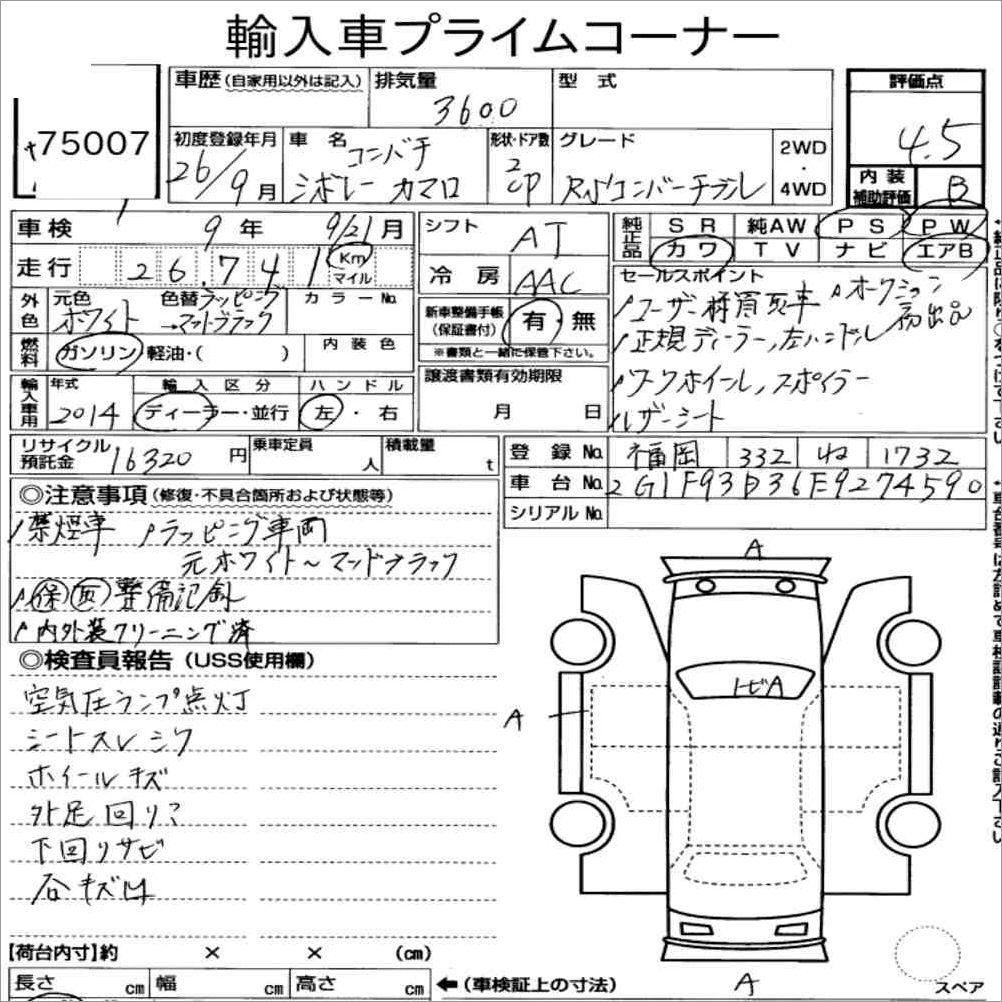 輸入車プライムコーナー
75007
車歴 (自家用以外は記入) 排気量 型式
3600
評価点
4.5
初度登録年月 車名 形状・ドア数 グレード 2WD・4WD
26/9月 コンバチ シボレー カマロ 2 CP RSコンバーチブル
内装補助評価 B
車検 9年 9/21月
走行 26741 Km マイル
外色 元色 ホワイト 色替 ラッピング →マットブラック カラーNo.
燃料 ガソリン 軽油・( ) 内装色
輸入車用 年式 2014 輸入区分 ディーラー・並行 ハンドル 左・右
リサイクル預託金 16320円 乗車定員 人 積載量 t
シフト AT
冷房 AAC
新車整備手帳(保証書付) 有 無
※書類と一緒に保管下さい。
譲渡書類有効期限
月 日
純正品 SR 純AW PS PW
カワ TV ナビ エアB
セールスポイント
ユーザー様買取車 オークション初出品
正規ディーラー,左ハンドル
ワークホイール,スポイラー
レザーシート
登録No. 福岡 332 ね 1732
車台No. 2G1F93D36E9274590
シリアルNo.
◎注意事項 (修復・不具合箇所および状態等)
禁煙車 ラッピング車両
元ホワイト～マッドブラック
保 取 整備記録
内外装クリーニング済
◎検査員報告 (USS使用欄)
空気圧ランプ点灯
シートスレシワ
ホイールキズ
外足回り
下回りサビ
谷キズ凹
A
トビA
A
A
【荷台内寸】約 × × (cm)
長さ cm 幅 cm 高さ cm ←(車検証上の寸法)
スペア